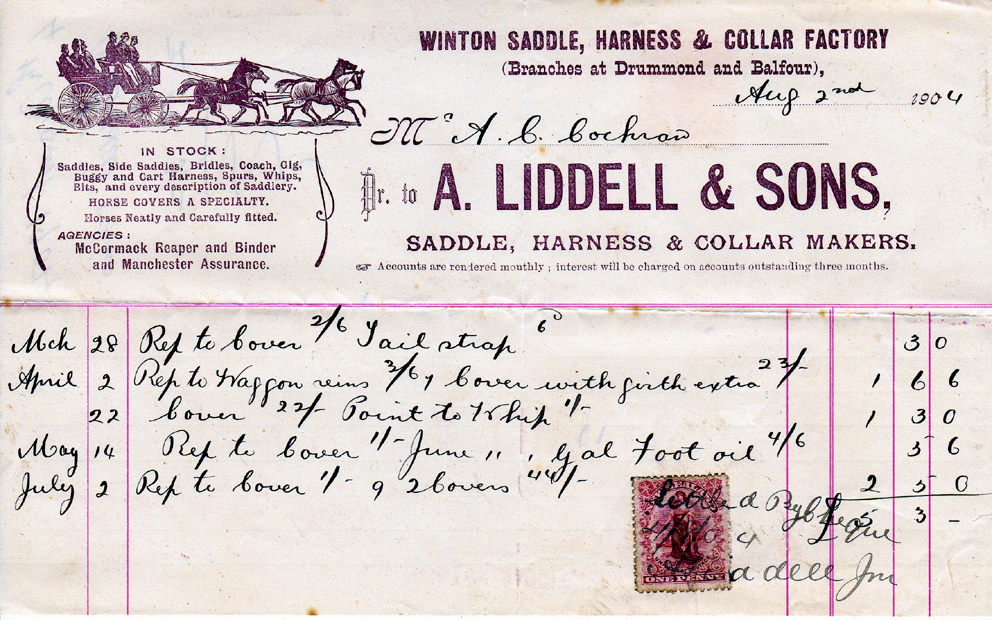 WINTON SADDLE, HARNESS & COLLAR FACTORY
(Branches at Drummond and Balfour),
Aug 2nd 1904
Mr A. C. Cochran
IN STOCK:
Saddles, Side Saddles, Bridles, Coach, Gig,
Buggy and Cart Harness, Spurs, Whips,
Bits, and every description of Saddlery.
HORSE COVERS A SPECIALTY.
Horses Neatly and Carefully fitted.
AGENCIES:
McCormack Reaper and Binder
and Manchester Assurance.
Dr. to A. LIDDELL & SONS,
SADDLE, HARNESS & COLLAR MAKERS.
☞ Accounts are rendered monthly; interest will be charged on accounts outstanding three months.
Mch 28 Rep to Cover 2/6 Tail strap 6d 3 0
April 2 Rep to Waggon reins 3/6 1 Cover with girth extra 23/- 1 6 6
22 Cover 22/- Point to Whip 1/- 1 3 0
May 14 Rep to Cover 1/- June 11 1 Gal Foot oil 4/6 5 6
July 2 Rep to Cover 1/- 9 2 Covers 44/- 2 5 0
£5 3 -
Settled By Cheque
Jnr
ONE PENNY